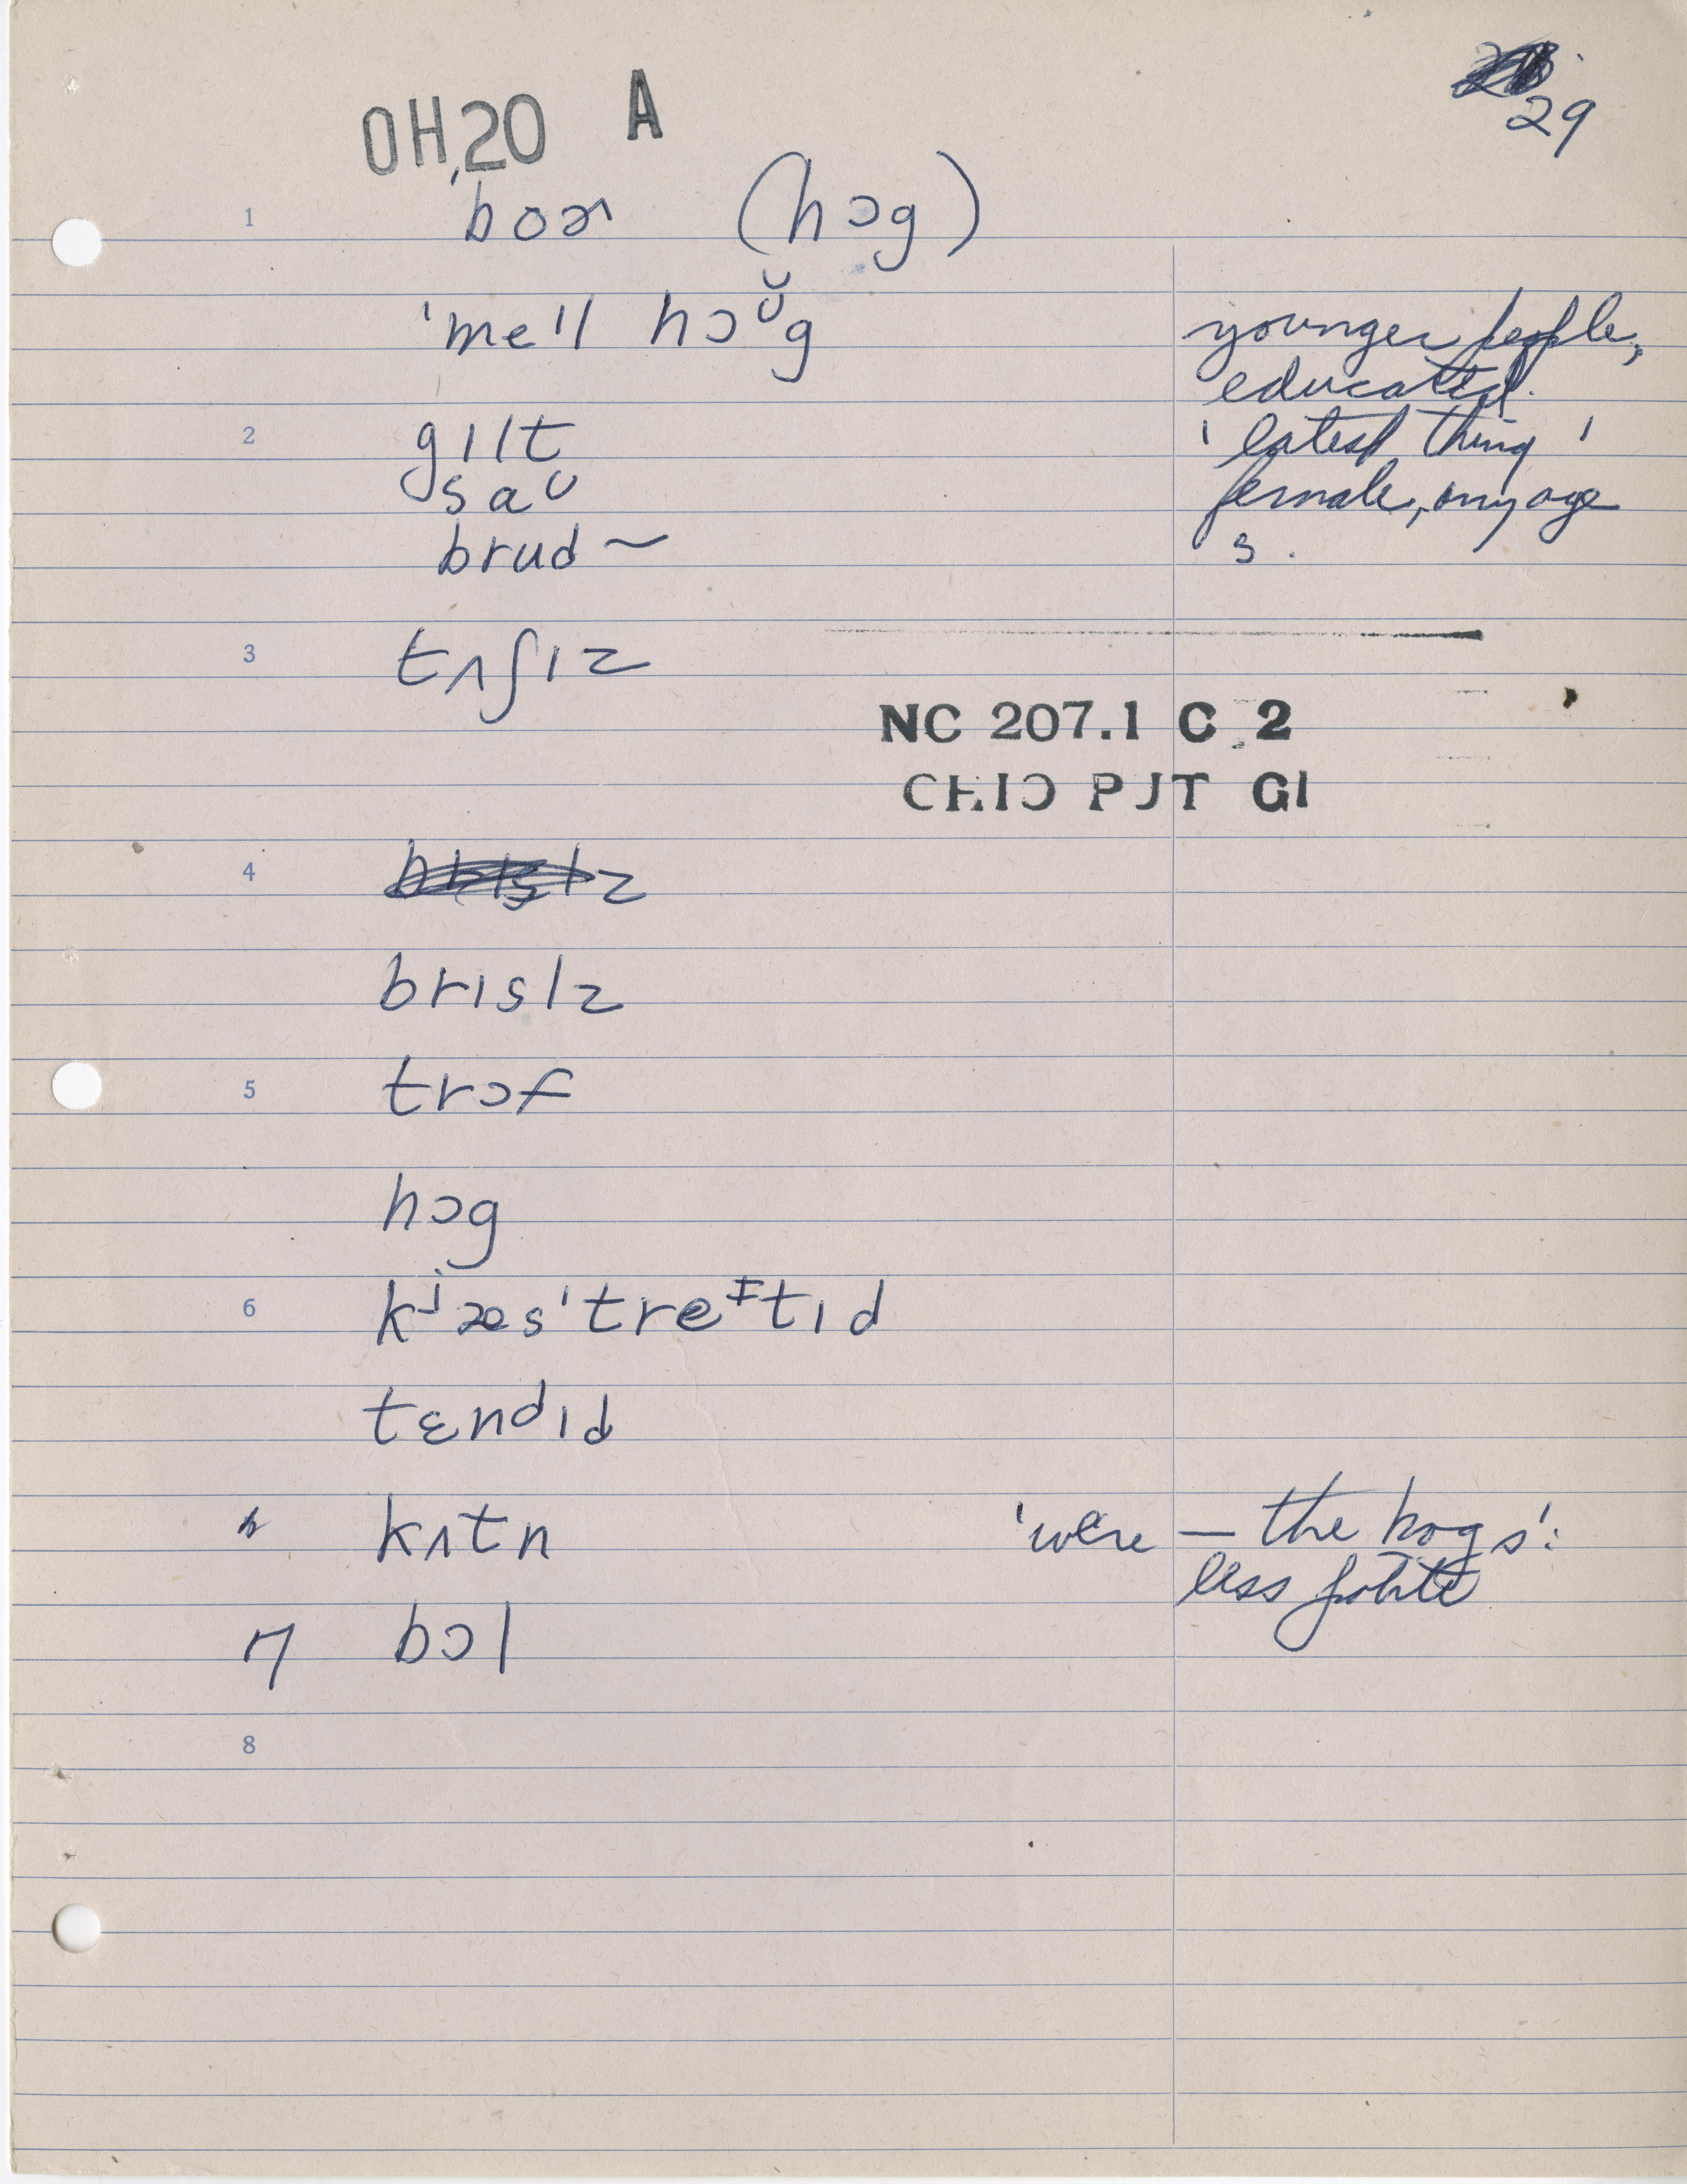 29
OH 20 A
1 ˈboɚ (hɔg)
ˈmeɪl hɔᶷ̆g younger people,
educated.
2 gɪlt 'latest thing'
saᶷ female, any age
brud ~ s.
3 tʌʃɪz
NC 207.1 C 2
OHIO PJT GI
4
brɪslz
5 trɔf
hɔg
6 kʲæsˈtreᵻtɪd
tɛnᵈɪd
kʌtn 'were — the hogs':
less polite
7 bɔl
8